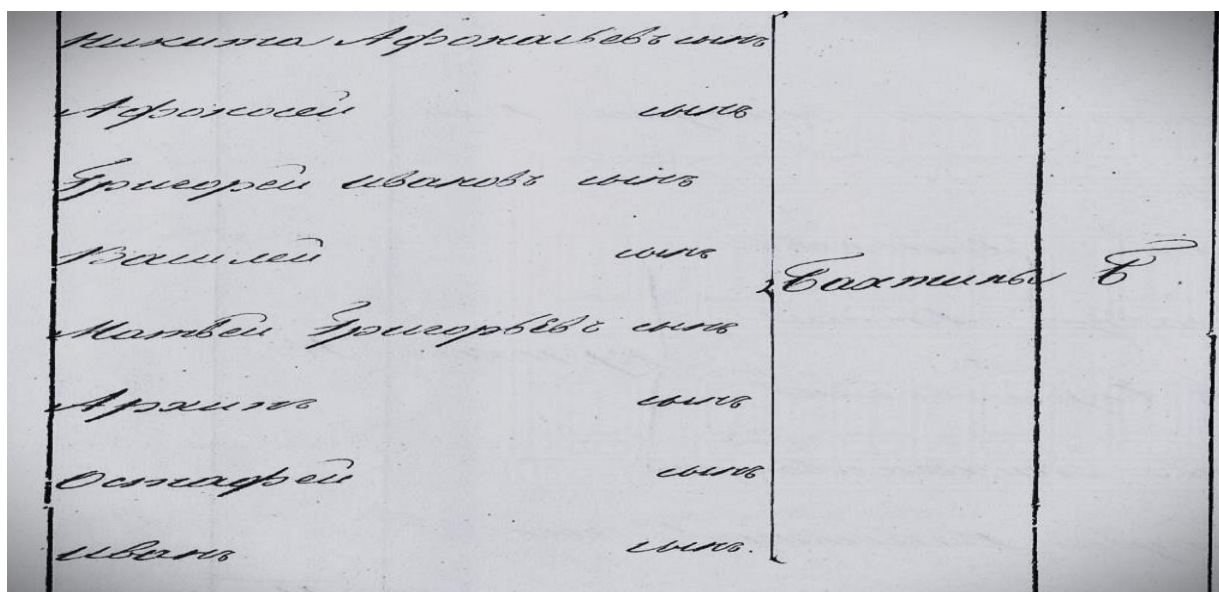 Никита Афонасьевъ сынъ
Афонасей сынъ
Григорей Ивановъ сынъ
Василей сынъ
Бахтины Б
Матвей Григорьевъ сынъ
Архипъ сынъ
Остафей сынъ
Иванъ сынъ.